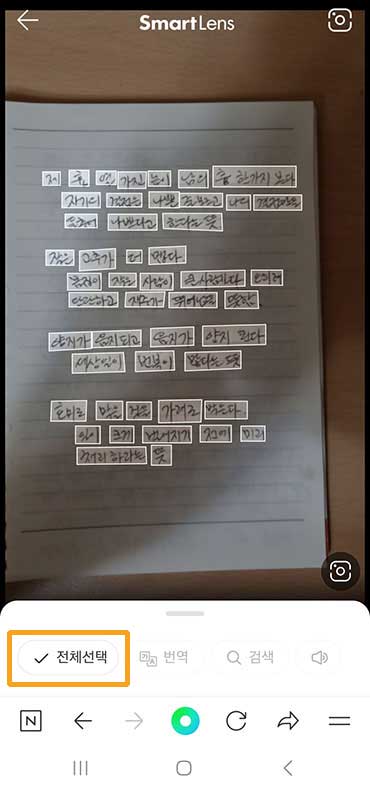 SmartLens
제 흉 열 가진 놈이 남의 흉 한가지 본다
자기의 결점은 나쁜 줄 모르고 남의 결점만을
나쁘다고 한다는 뜻
작은 고추가 더 맵다
몸집이 작은 사람이 큰 사람보다 오히려
단단하고 재주가 뛰어나다 뜻함
양지가 음지되고 음지가 양지 된다
세상일이 번복이 많다는 뜻
호미로 막을 것을 가래로 막는다.
일이 크게 벌어지기 전에 미리
처리하라는 뜻
전체선택 번역 검색
N